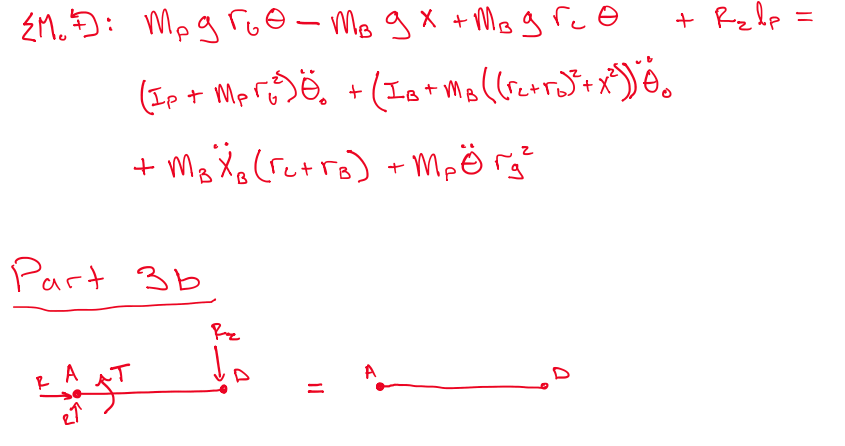 ΣM₀ ↶+: m_p g r_G θ − m_B g x + m_B g r_c θ + R_z l_p =
(I_p + m_p r_G²) θ̈₀ + (I_B + m_B((r_c+r_b)²+x²)) θ̈₀
+ m_B ẍ_B (r_c + r_B) + m_p θ̈ r_g²
Part 3b
R_z
R A T D = A D
R